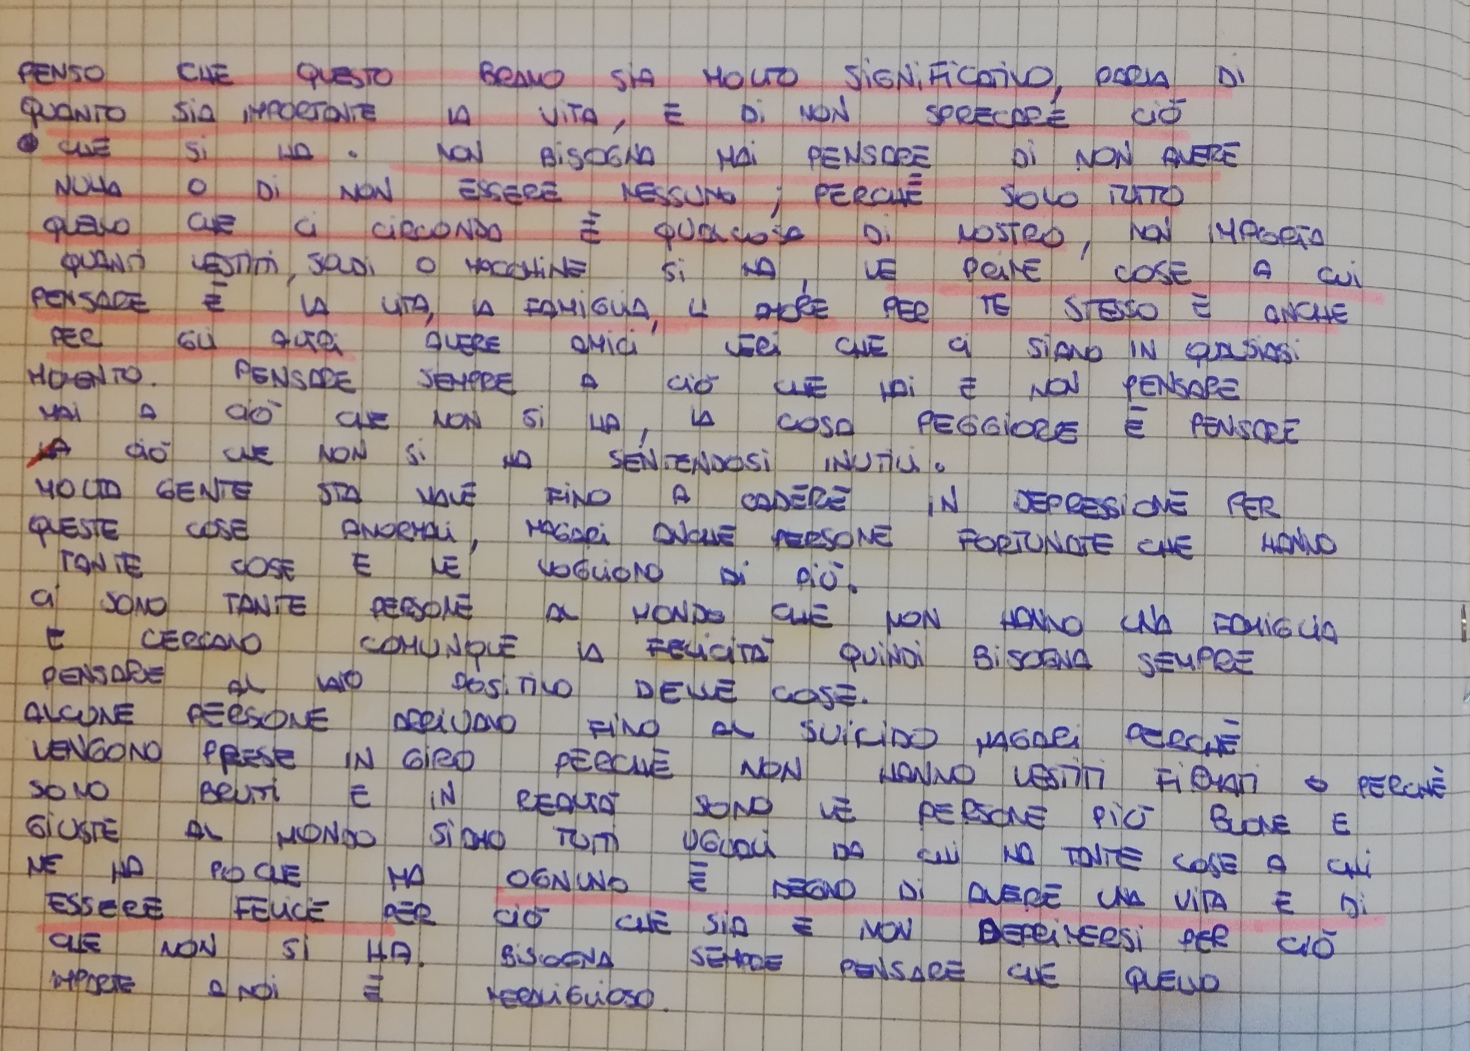 PENSO CHE QUESTO BRANO SIA MOLTO SIGNIFICATIVO, PARLA DI
QUANTO SIA IMPORTANTE LA VITA, E DI NON SPRECARE CIÒ
CHE SI HA. NON BISOGNA MAI PENSARE DI NON AVERE
NULLA O DI NON ESSERE NESSUNO, PERCHÈ SOLO TUTTO
QUELLO CHE CI CIRCONDA È QUALCOSA DI NOSTRO, NON IMPORTA
QUANTI VESTITI, SOLDI O MACCHINE SI HA, LE PRIME COSE A CUI
PENSARE È LA VITA, LA FAMIGLIA, L'AMORE PER TE STESSO E ANCHE
PER GLI ALTRI AVERE AMICI VERI CHE CI SIANO IN QALSIASI
MOMENTO. PENSARE SEMPRE A CIÒ CHE HAI E NON PENSARE
MAI A CIÒ CHE NON SI HA, LA COSA PEGGIORE È PENSARE
A CIÒ CHE NON SI HA SENTENDOSI INUTILI.
MOLTA GENTE STA MALE FINO A CADERE IN DEPRESSIONE PER
QUESTE COSE ANORMALI, MAGARI ANCHE PERSONE FORTUNATE CHE HANNO
TANTE COSE E NE VOGLIONO DI PIÙ.
CI SONO TANTE PERSONE AL MONDO CHE NON HANNO UNA FAMIGLIA
E CERCANO COMUNQUE LA FELICITÀ QUINDI BISOGNA SEMPRE
PENSARE AL LATO POSITIVO DELLE COSE.
ALCUNE PERSONE ARRIVANO FINO AL SUICIDO MAGARI PERCHÈ
VENGONO PRESE IN GIRO PERCHÈ NON HANNO VESTITI FIRMATI O PERCHÈ
SONO BRUTTI E IN REALTÀ SONO LE PERSONE PIÙ BUONE E
GIUSTE AL MONDO SIAMO TUTTI UGUALI DA CHI HA TANTE COSE A CHI
NE HA POCHE MA OGNUNO È DEGNO DI AVERE UNA VITA E DI
ESSERE FELICE PER CIÒ CHE SIA E NON DEPRIMERSI PER CIÒ
CHE NON SI HA. BISOGNA SEMPRE PENSARE CHE QUELLO
A NOI È MERAVIGLIOSO.